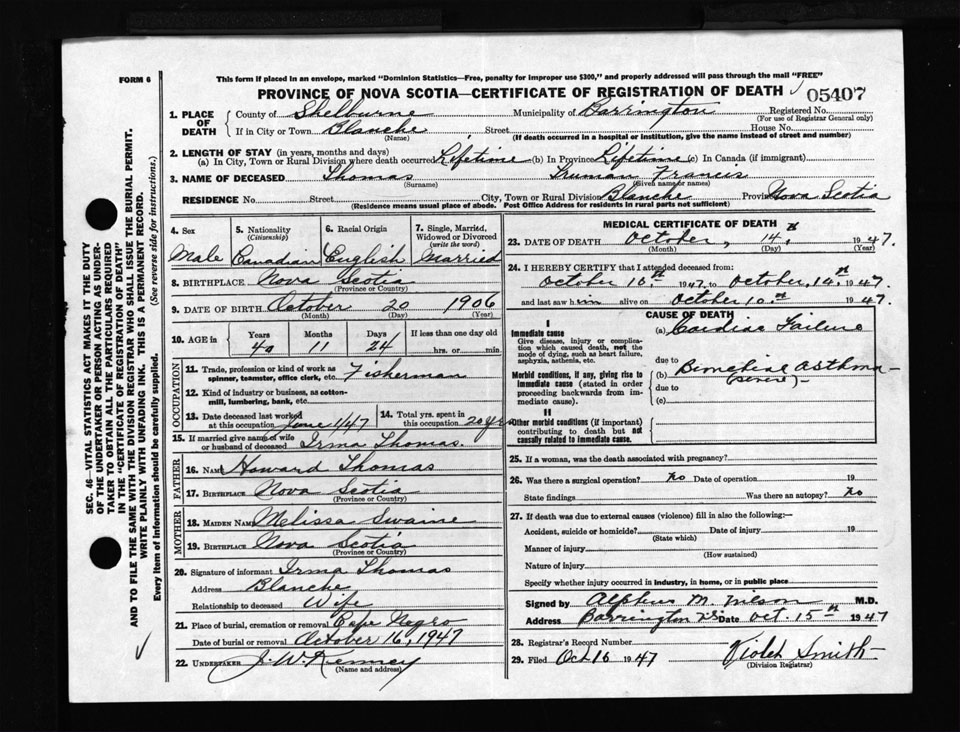 FORM 6
This form if placed in an envelope, marked "Dominion Statistics—Free, penalty for improper use $300," and properly addressed will pass through the mail "FREE"
PROVINCE OF NOVA SCOTIA—CERTIFICATE OF REGISTRATION OF DEATH 05407
SEC. 46—VITAL STATISTICS ACT MAKES IT THE DUTY
OF THE UNDERTAKER OR PERSON ACTING AS UNDER-
TAKER TO OBTAIN ALL THE PARTICULARS REQUIRED
IN THE "CERTIFICATE OF REGISTRATION OF DEATH"
AND TO FILE THE SAME WITH THE DIVISION REGISTRAR WHO SHALL ISSUE THE BURIAL PERMIT.
WRITE PLAINLY WITH UNFADING INK. THIS IS A PERMANENT RECORD.
Every item of information should be carefully supplied. (See reverse side for instructions.)
1. PLACE OF DEATH
County of Shelburne Municipality of Barrington Registered No.
(For use of Registrar General only)
If in City or Town Blanche Street House No.
(Name) (If death occurred in a hospital or institution, give the name instead of street and number)
2. LENGTH OF STAY (in years, months and days)
(a) In City, Town or Rural Division where death occurred Lifetime (b) In Province Lifetime (c) In Canada (if immigrant)
3. NAME OF DECEASED Thomas Truman Francis
(Surname) (Given name or names)
RESIDENCE No. Street City, Town or Rural Division Blanche Province Nova Scotia
(Residence means usual place of abode. Post Office Address for residents in rural parts not sufficient)
4. Sex
Male
5. Nationality
(Citizenship)
Canadian
6. Racial Origin
English
7. Single, Married,
Widowed or Divorced
(write the word)
Married
8. BIRTHPLACE Nova Scotia
(Province or Country)
9. DATE OF BIRTH October 20 1906
(Month) (Day) (Year)
10. AGE in Years Months Days If less than one day old
40 11 24 hrs. or min.
OCCUPATION
11. Trade, profession or kind of work as Fisherman
spinner, teamster, office clerk, etc.
12. Kind of industry or business, as cotton-
mill, lumbering, bank, etc.
13. Date deceased last worked
at this occupation June 1/47
14. Total yrs. spent in
this occupation 20 yrs
15. If married give name of wife
or husband of deceased Irma Thomas.
FATHER
16. NAME Howard Thomas
17. BIRTHPLACE Nova Scotia
(Province or Country)
MOTHER
18. MAIDEN NAME Melissa Swaine
19. BIRTHPLACE Nova Scotia
(Province or Country)
20. Signature of informant Irma Thomas
Address Blanche
Relationship to deceased Wife
21. Place of burial, cremation or removal Cape Negro
Date of burial or removal October 16, 1947
22. UNDERTAKER J. W. Kenney
(Name and address)
MEDICAL CERTIFICATE OF DEATH
23. DATE OF DEATH October, 14, 1947.
(Month) (Day) (Year)
24. I HEREBY CERTIFY that I attended deceased from:
October 10th 1947 to October, 14th 1947
and last saw him alive on October 10th 1947.
CAUSE OF DEATH
I
Immediate cause
Give disease, injury or complica-
tion which caused death, not the
mode of dying, such as heart failure,
asphyxia, asthenia, etc.
(a) Cardiac Failure
due to
Morbid conditions, if any, giving rise to
immediate cause (stated in order
proceeding backwards from im-
mediate cause).
(b) Bronchial Asthma—
due to (severe)—
(c)
II
Other morbid conditions (if important)
contributing to death but not
causally related to immediate cause.
25. If a woman, was the death associated with pregnancy?
26. Was there a surgical operation? No Date of operation 19
State findings Was there an autopsy? No
27. If death was due to external causes (violence) fill in also the following:—
Accident, suicide or homicide? Date of injury 19
(State which)
Manner of injury
(How sustained)
Nature of injury
Specify whether injury occurred in industry, in home, or in public place
Signed by Alpheus M. Wilson M.D.
Address Barrington N.S. Date Oct. 15th 1947
28. Registrar's Record Number
29. Filed Oct 16 1947 Violet Smith
(Division Registrar)